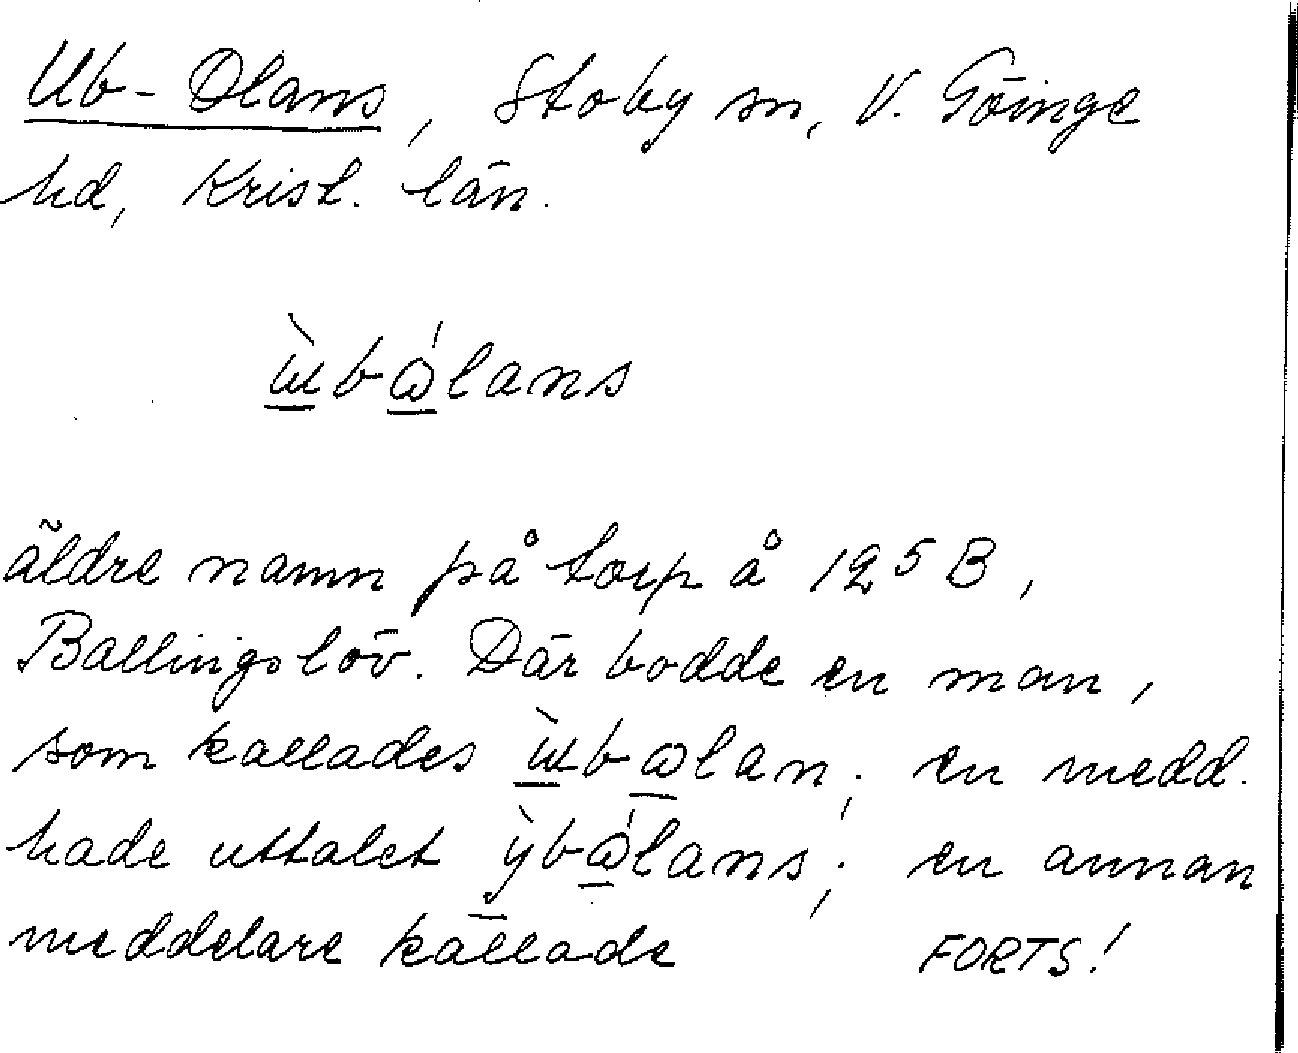 Ub-Olans, Stoby sn, V. Göinge
hd, Krist. län.
ɯ̀bώlans
äldre namn på torp å 12⁵ B,
Ballingslöv. Där bodde en man,
som kallades ɯ̀bωlan; en medd.
hade uttalet ỳbώlans; en annan
meddelare kallade FORTS!